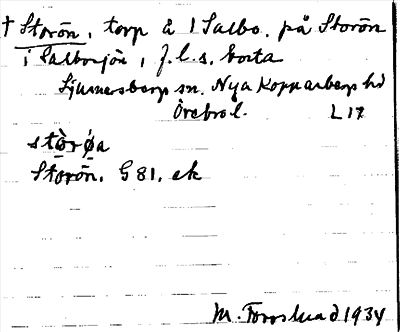 † Storön, torp å 1 Salbo. på Storön
i Salbosjön, f.l.s. borta
Ljusnarsberg sn. Nya Kopparbergs hd
Örebro l. L 17
stòrǿa
Storön, G 81, ek
M. Forslund 1934